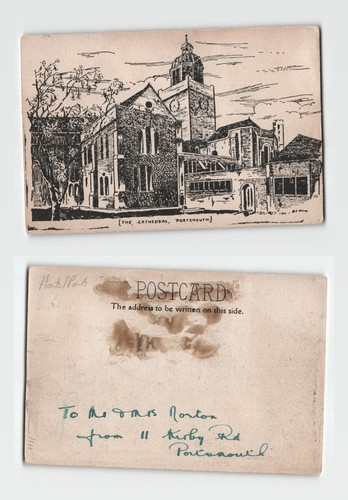 [THE CATHEDRAL, PORTSMOUTH]
Hants/Ports
POSTCARD
The address to be written on this side.
To Mr & Mrs Norton
from 11 Kirby Rd
Portsmouth